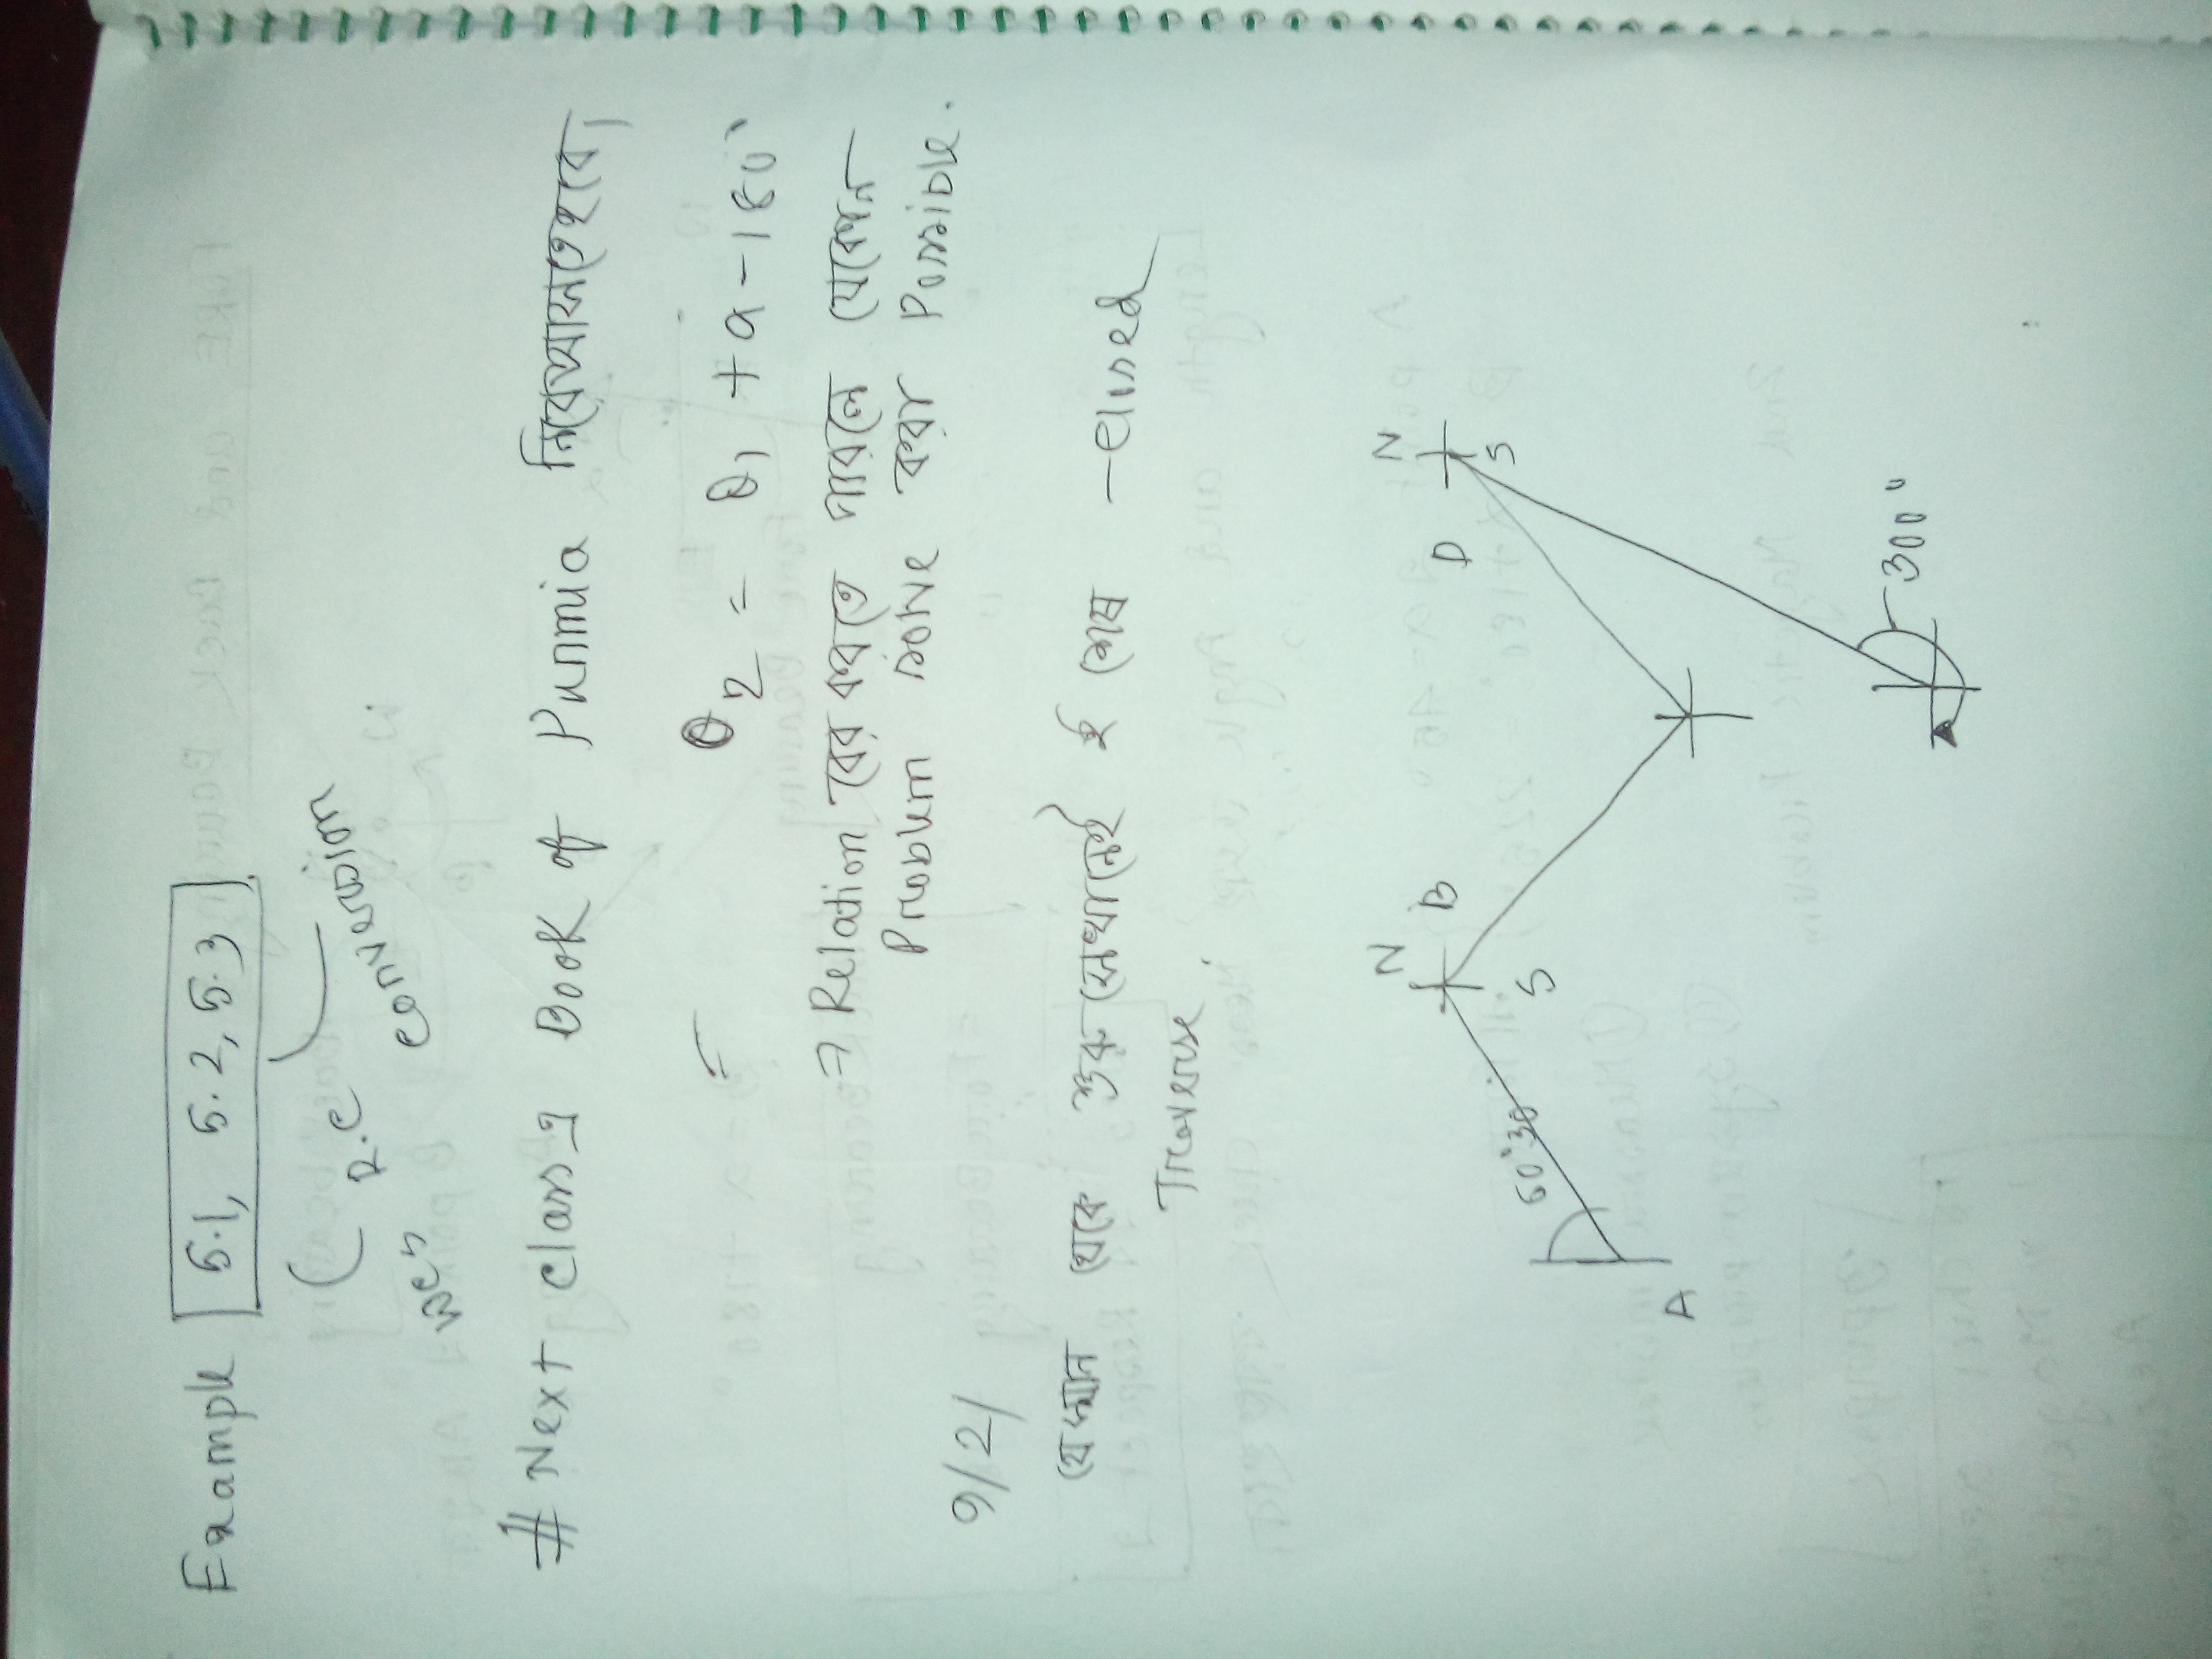 Example 5.1, 5.2, 5.3
( R.C conversion
WCB
# Next class এ Book of Punmia নিয়ে আসতে হবে।
θ2 = θ1 + a - 180°
→ Relation বের করতে পারলে যেকোন
Problem solve করা Possible.
9/2/
যেখান থেকে শুরু সেখানেই ই শেষ - Closed
Traverse
N
B
S
N
D
S
60°30
A
300°